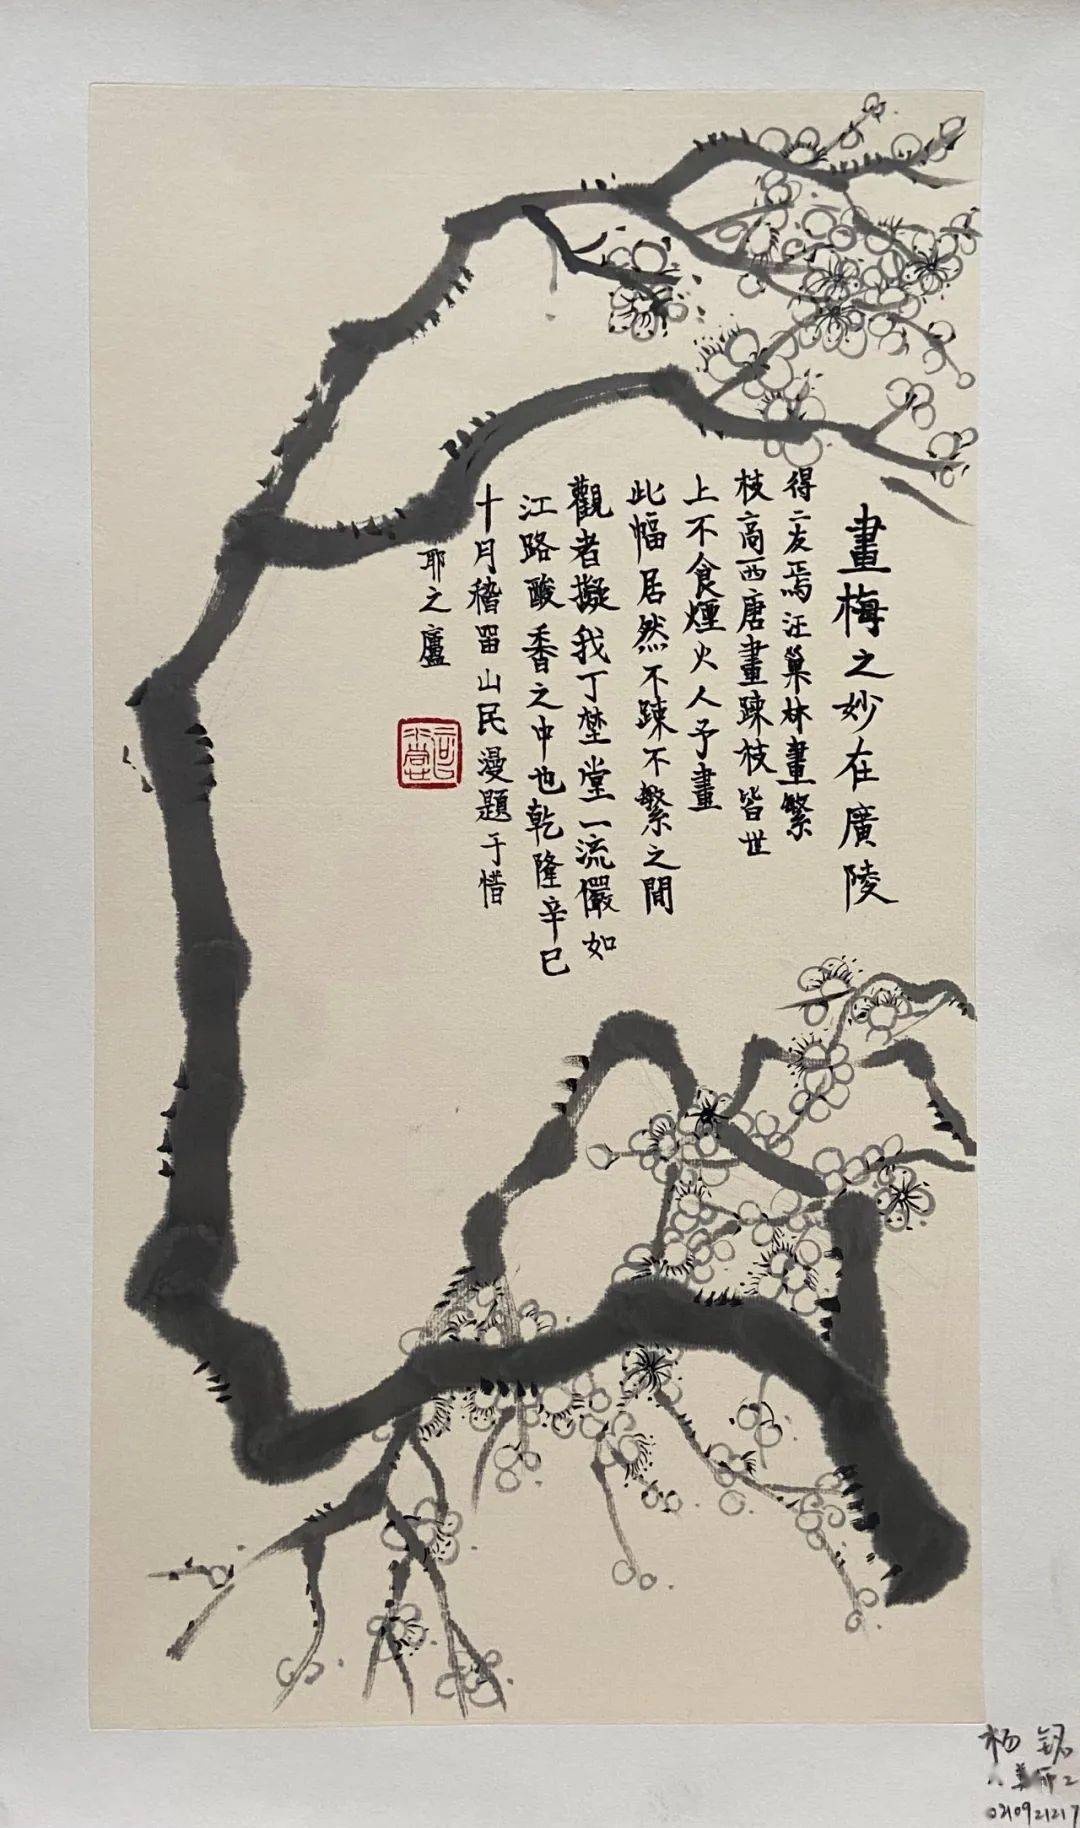 畫梅之妙在廣陵
得二友焉汪巢林畫繁
枝高西唐畫踈枝皆世
上不食煙火人予畫
此幅居然不踈不繁之間
觀者擬我丁埜堂一流儼如
江路酸香之中也乾隆辛巳
十月稽留山民漫題于惜
耶之廬
杨 铭
0210921217